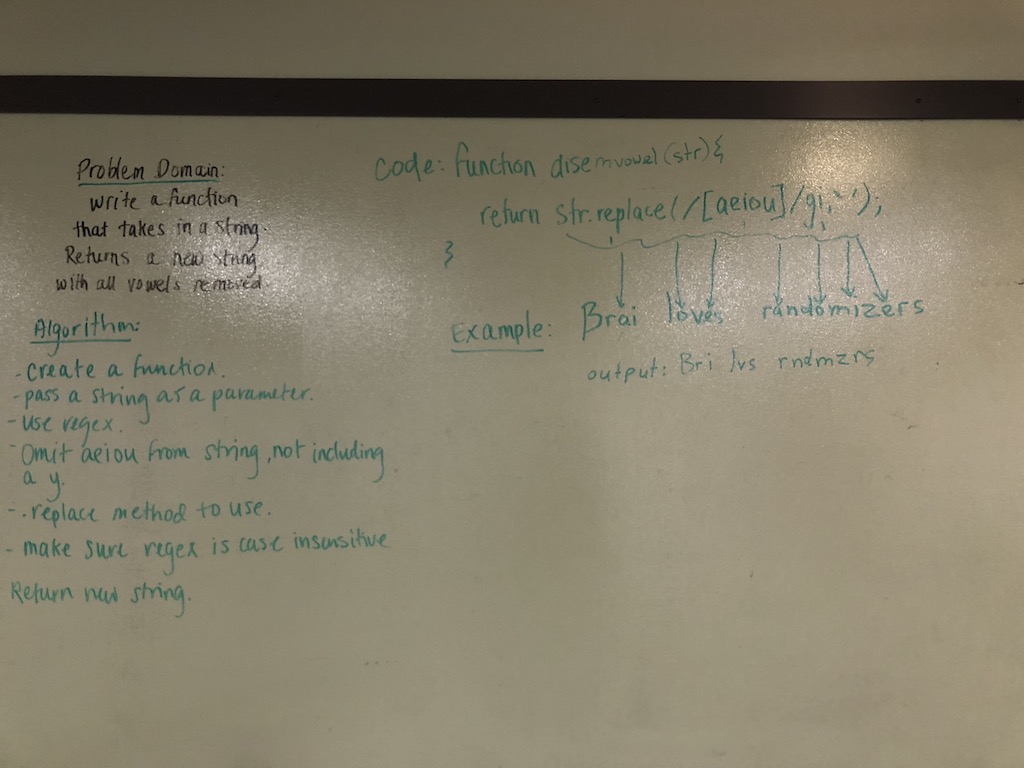 Problem Domain:
write a function
that takes in a string.
Returns a new string
with all vowels removed.
Algorithm:
- create a function.
- pass a string as a parameter.
- use regex.
- Omit aeiou from string, not including
a y.
- .replace method to use.
- make sure regex is case insensitive
Return new string.
Code: function disemvowel (str) {
return str.replace(/[aeiou]/gi, '');
}
Example: Brai loves randomizers
output: Bri lvs rndmzrs